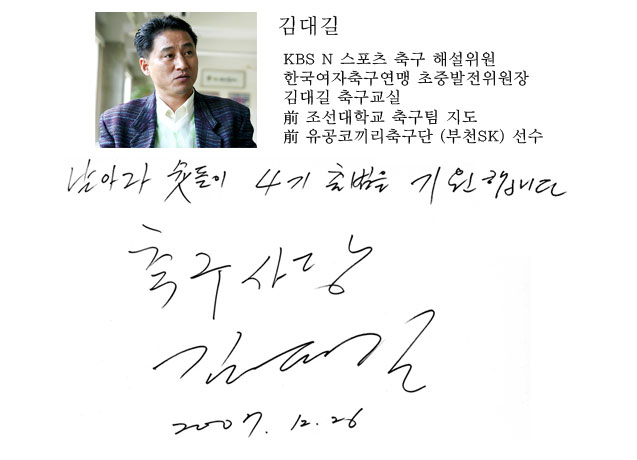 김대길
KBS N 스포츠 축구 해설위원
한국여자축구연맹 초중발전위원장
김대길 축구교실
前 조선대학교 축구팀 지도
前 유공코끼리축구단 (부천SK) 선수
날아라 슛돌이 4기 출범을 기원합니다
축구사랑
김대길
2007. 12. 26